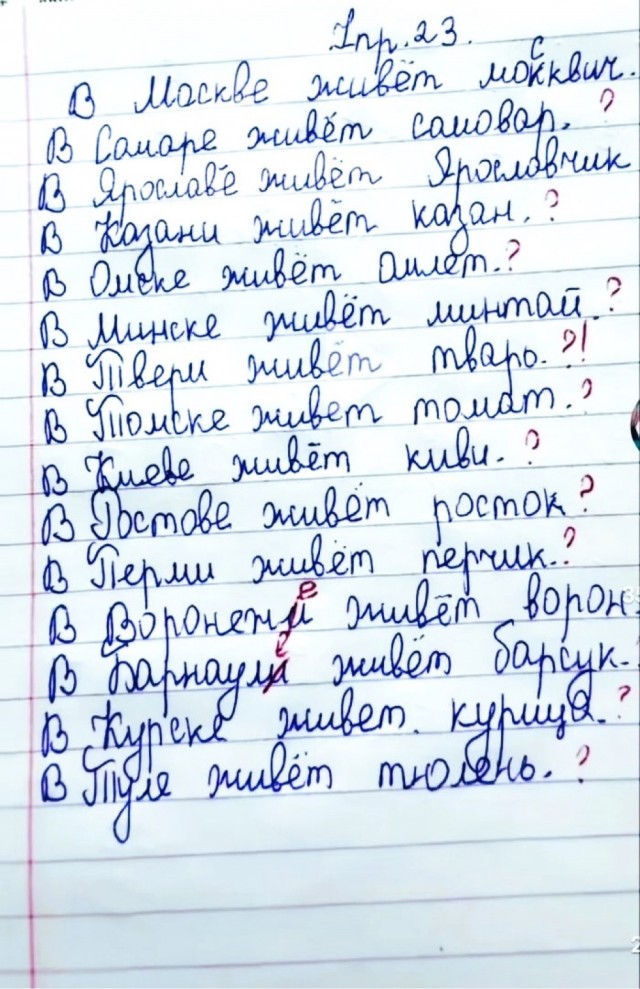 Упр. 23.
В Москве живёт москквич.
В Самаре живёт самовар. ?
В Ярославе живёт Ярославчик
В Казани живёт казан. ?
В Омске живёт омлет. ?
В Минске живёт минтай. ?
В Твери живёт тварь. ?!
В Томске живет томат. ?
В Киеве живёт киви. ?
В Ростове живёт росток ?
В Перми живёт перчик. ?
В Воронежие живёт ворон.
В Барнауле живёт барсук.
В Курске живет. курица. ?
В Туле живёт тюлень. ?